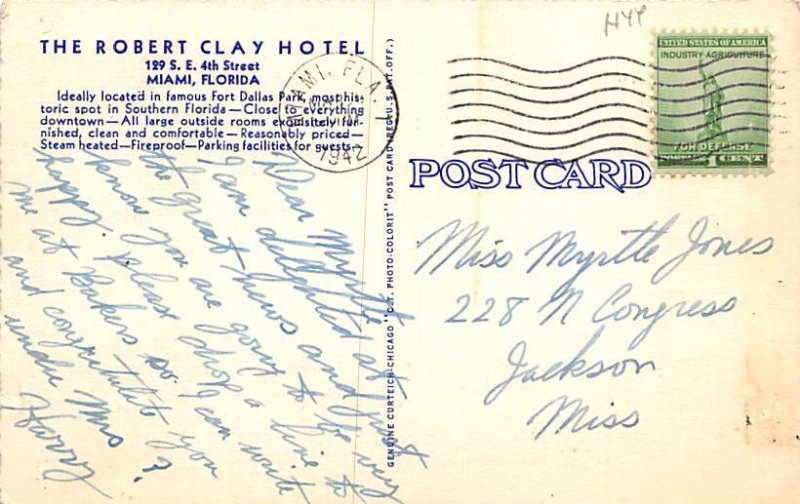 HYP
THE ROBERT CLAY HOTEL
129 S. E. 4th Street
MIAMI, FLORIDA
Ideally located in famous Fort Dallas Park, most his-
toric spot in Southern Florida — Close to everything
downtown — All large outside rooms exquisitely fur-
nished, clean and comfortable — Reasonably priced —
Steam heated — Fireproof — Parking facilities for guests.
MIAMI, FLA.
1942
UNITED STATES OF AMERICA
INDUSTRY AGRICULTURE
FOR DEFENSE
1 CENT
POST CARD
GENUINE CURTEICH-CHICAGO "C.T. PHOTO-COLORIT" POST CARD (REG. U. S. PAT. OFF.)
Dear Myrtle
I am delighted at
the great news and just
know you are going to be very
happy. Please drop a line to
me at Bakers so I can write
and congratulate you
under Mrs ?
Harry
Miss Myrtle Jones
228 N Congress
Jackson
Miss